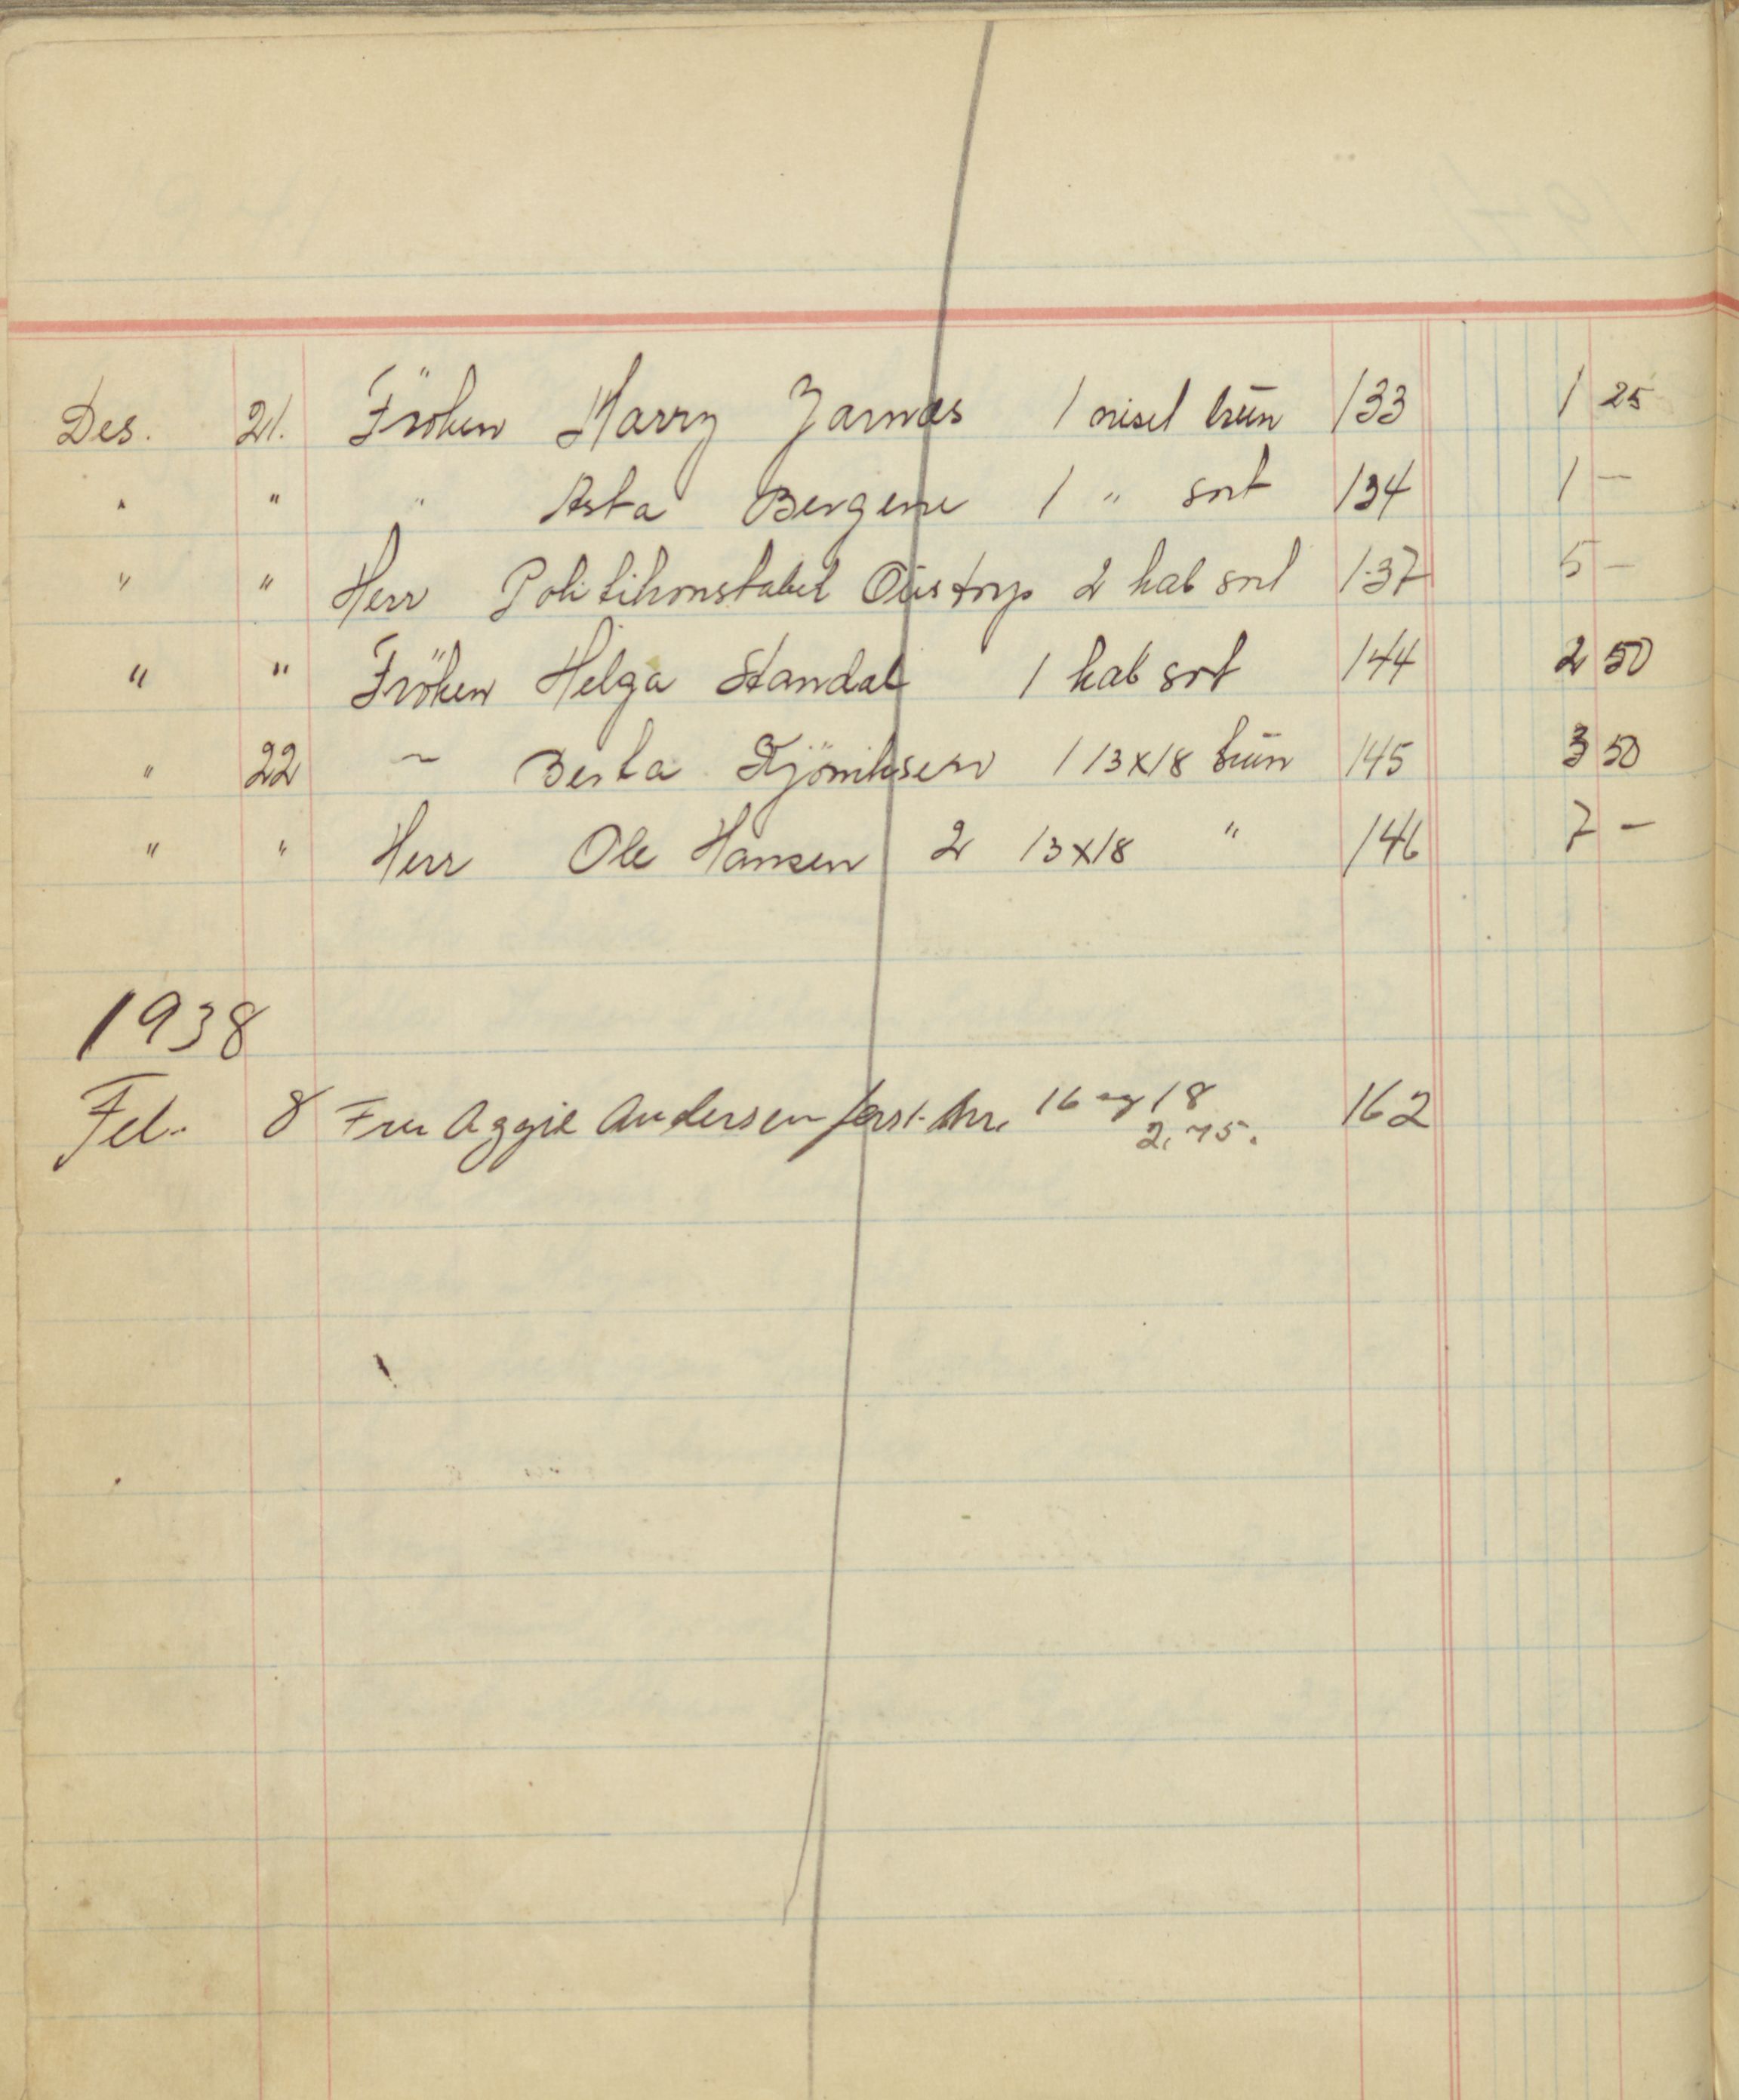 Des. 21. Fröken Harry Jarnæs 1 visit brün 133 1 25
" " " Asta Bergene 1 " sort 134 1 —
" " Herr Politikonstabel Oüstorp 2 kab sort 137 5 —
" " Fröken Helga Standal 1 kab sort 144 2 50
" 22 ~ Berta 1 13x18 brün 145 3 50
" " Herr Ole Hansen 2 13x18 " 146 7 —
1938
Feb. 8 Fru Aggie Andersen forst. 16 og 18 162
2,75.